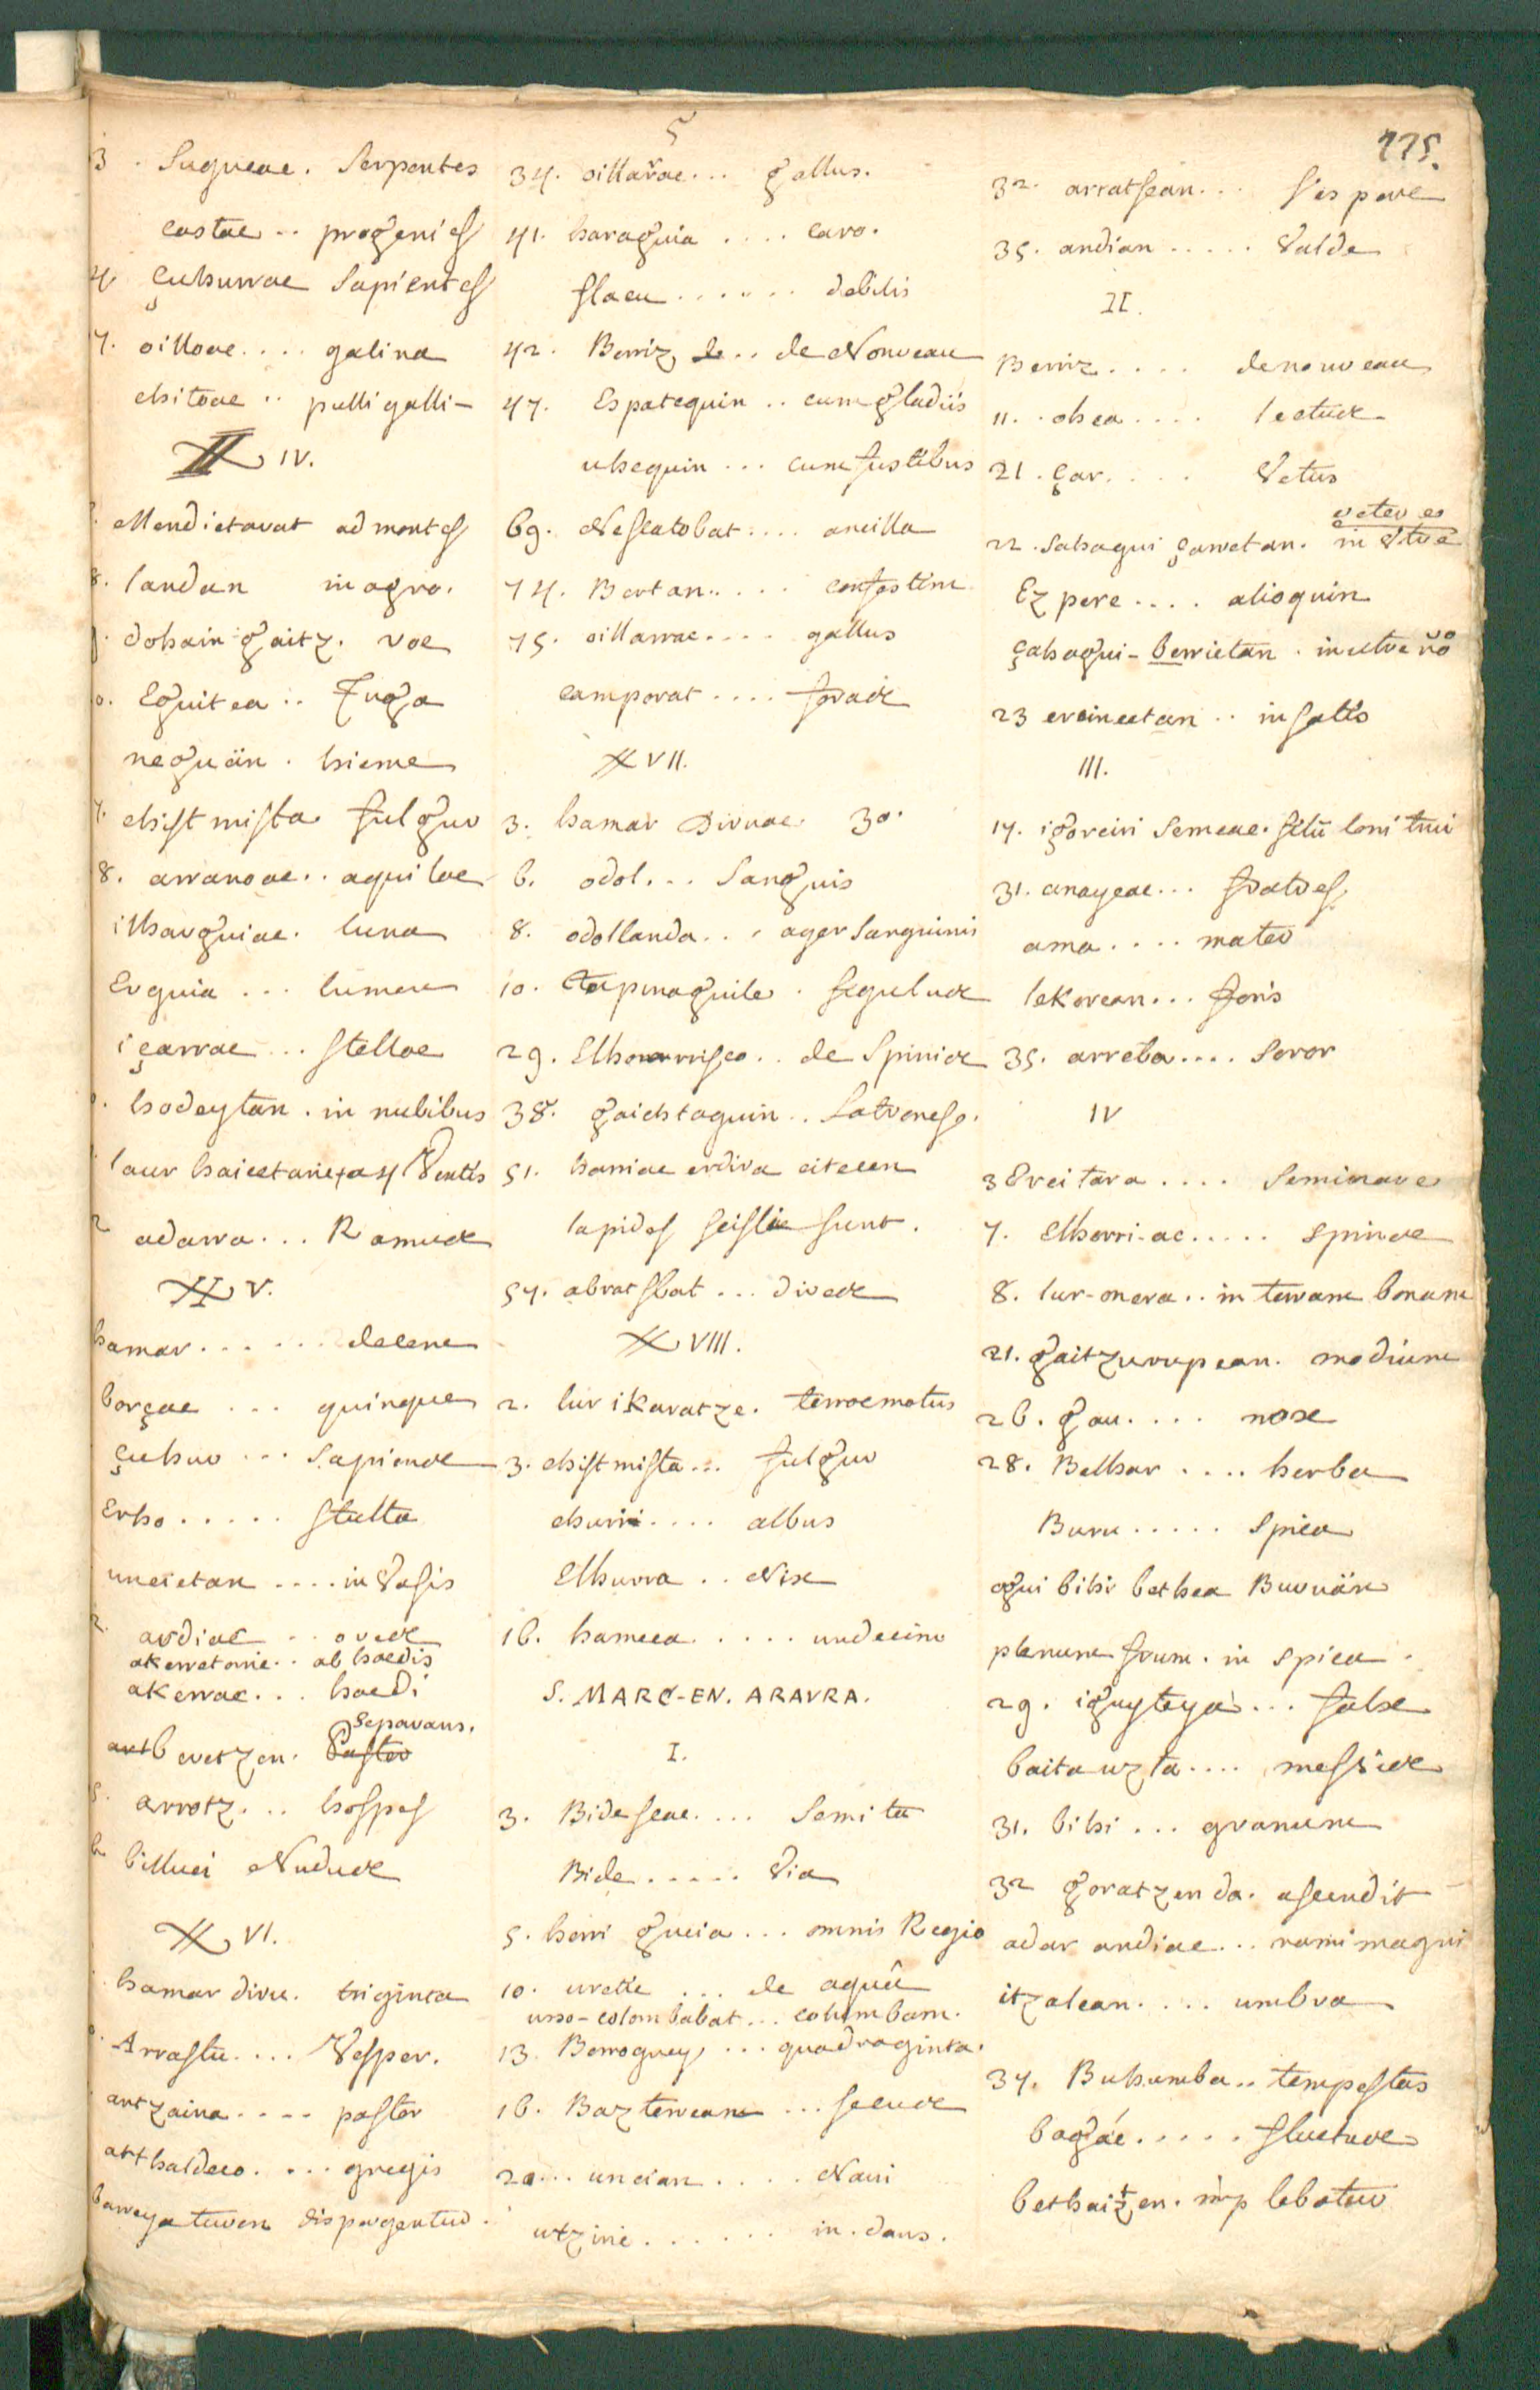 5
775.
3. Sugueac. Serpentes
castac.. progenies
çuhurrac Sapientes
7. oilloac.... galina
chitoac.. pulli galli-
XX IV.
Mendietarat ad montes
8. landan in agro.
dohain-gaitz. voe
0. Eguitea.. Fuga
neguän. hieme
7. chistmista fulgur
8. arranoac.. aquilae
ilharguiac. luna
Erguia... lumen
içarrac... Stellae
hodeytan. in nubibus
laur haicetarie 4 Ventis
2 adarra... Ramus
XX V.
hamar...... decem
borçac... quinque
çuhur... Sapiens
Erho..... Stulta
uncietan.... in Vasis
2. ardiac.. oves
akerretarie.. ab haedis
akerrac... haedi
Separans.
art beretzen. Pastor
5. arrotz... hospes
6 billuci Nudus
XX VI.
hamar diru. triginta
Arrastu.... Vesper.
artzaina.... pastor
arthaldeco.... gregis
barreyaturen dispergentur.
34. oillarrac... gallus.
41. haraguia.... caro.
flacu...... debilis
42. Berriz, de.. de Nouveau
47. Espatequin.. cum gladiis
uhequin... cum fustibus
69. Nescatobat.... ancilla
74. Bertan..... confestim
75. oillarrac.... gallus
camporat.... foras
XX VII.
3. hamar Diruac 30.
6. odol... Sanguis
8. odollanda... ager Sanguinis
10. Tapinaguile. figulus
29. Elhorrrisco.. de Spinis
38. gaichtaguin.. Latrones.
51. harriac erdira citecen
lapides scissi sunt.
57. abratsbat... dives
XX VIII.
2. lur ikaratze. terraemotus
3. chistmista... fulgur
churri.... albus
Elhurra.. Nix
16. hameca..... undecim
S. MARC-EN. ARAVRA.
I.
3. Bidescac.... Semitae
Bide..... Via
5. herri gucia... omnis Regio
10. uretic... de aquâ
urso-colombabat... columbam.
13. Berroguey,... quadraginta.
16. Bazterrean... secus
20... uncian.... Navi
utziric...... in. dans.
32. arratsean... Vespere
35. andian..... Valde
II.
Berriz.... de nouveau
11. ohea.... lectus
21. çar..... Vetus
veteres
22. Sahagui çarretan. in Utre
Ezpere.... alioquin
çahagui-berrietan. in utre nō
23 ereincetan.. in satis
III.
17. igorciri Semeac. filii tonitrui
31. anayeac... fratres
ama.... mater
lekorean... foris
35. arreba.... Soror
IV
3 Ereitara.... Seminare
7. Elhorri-ac..... Spinae
8. lur-onera.. in terram bonam
21. gaitzurupean. modium
26. gau.... nox
28. Belhar.... herba
Buru..... Spica
ogui bihi bethea Buruän
plenum frum. in Spica.
29. iguyteya... falx
baita uzta.... messis
31. bihi... granum
32 goratzen da. ascendit
adar andiac... rami magni
itzalean.... umbra
37. Buhumba.. tempestas
bagác..... fluctus
bethaitzen. implebatur